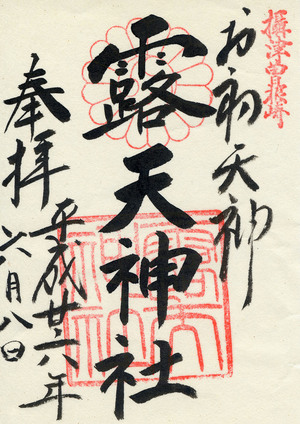 攝津曽根崎
お初天神
露天神社
奉拝
平成廿六年
六月八日